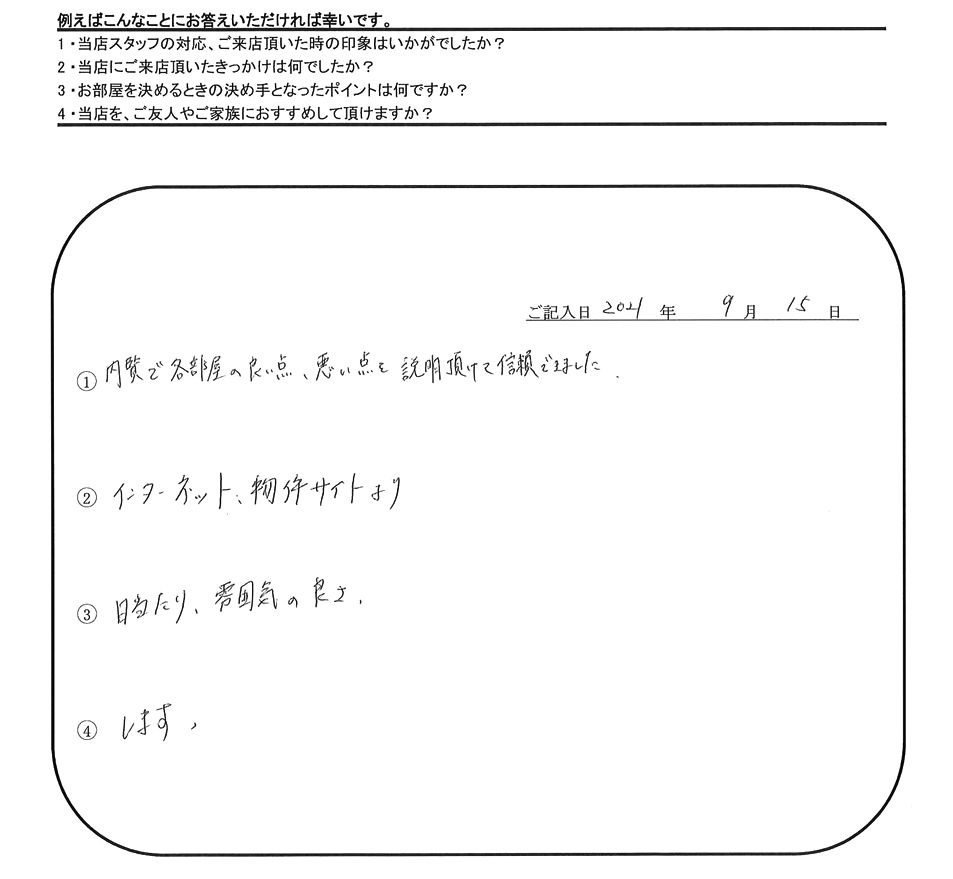 例えばこんなことにお答えいただければ幸いです。
1・当店スタッフの対応、ご来店頂いた時の印象はいかがでしたか？
2・当店にご来店頂いたきっかけは何でしたか？
3・お部屋を決めるときの決め手となったポイントは何ですか？
4・当店を、ご友人やご家族におすすめして頂けますか？
ご記入日 2021 年 9 月 15 日
① 内覧で各部屋の良い点、悪い点を説明頂けて信頼できました.
② インターネット、物件サイトより
③ 日当たり、雰囲気の良さ.
④ します、